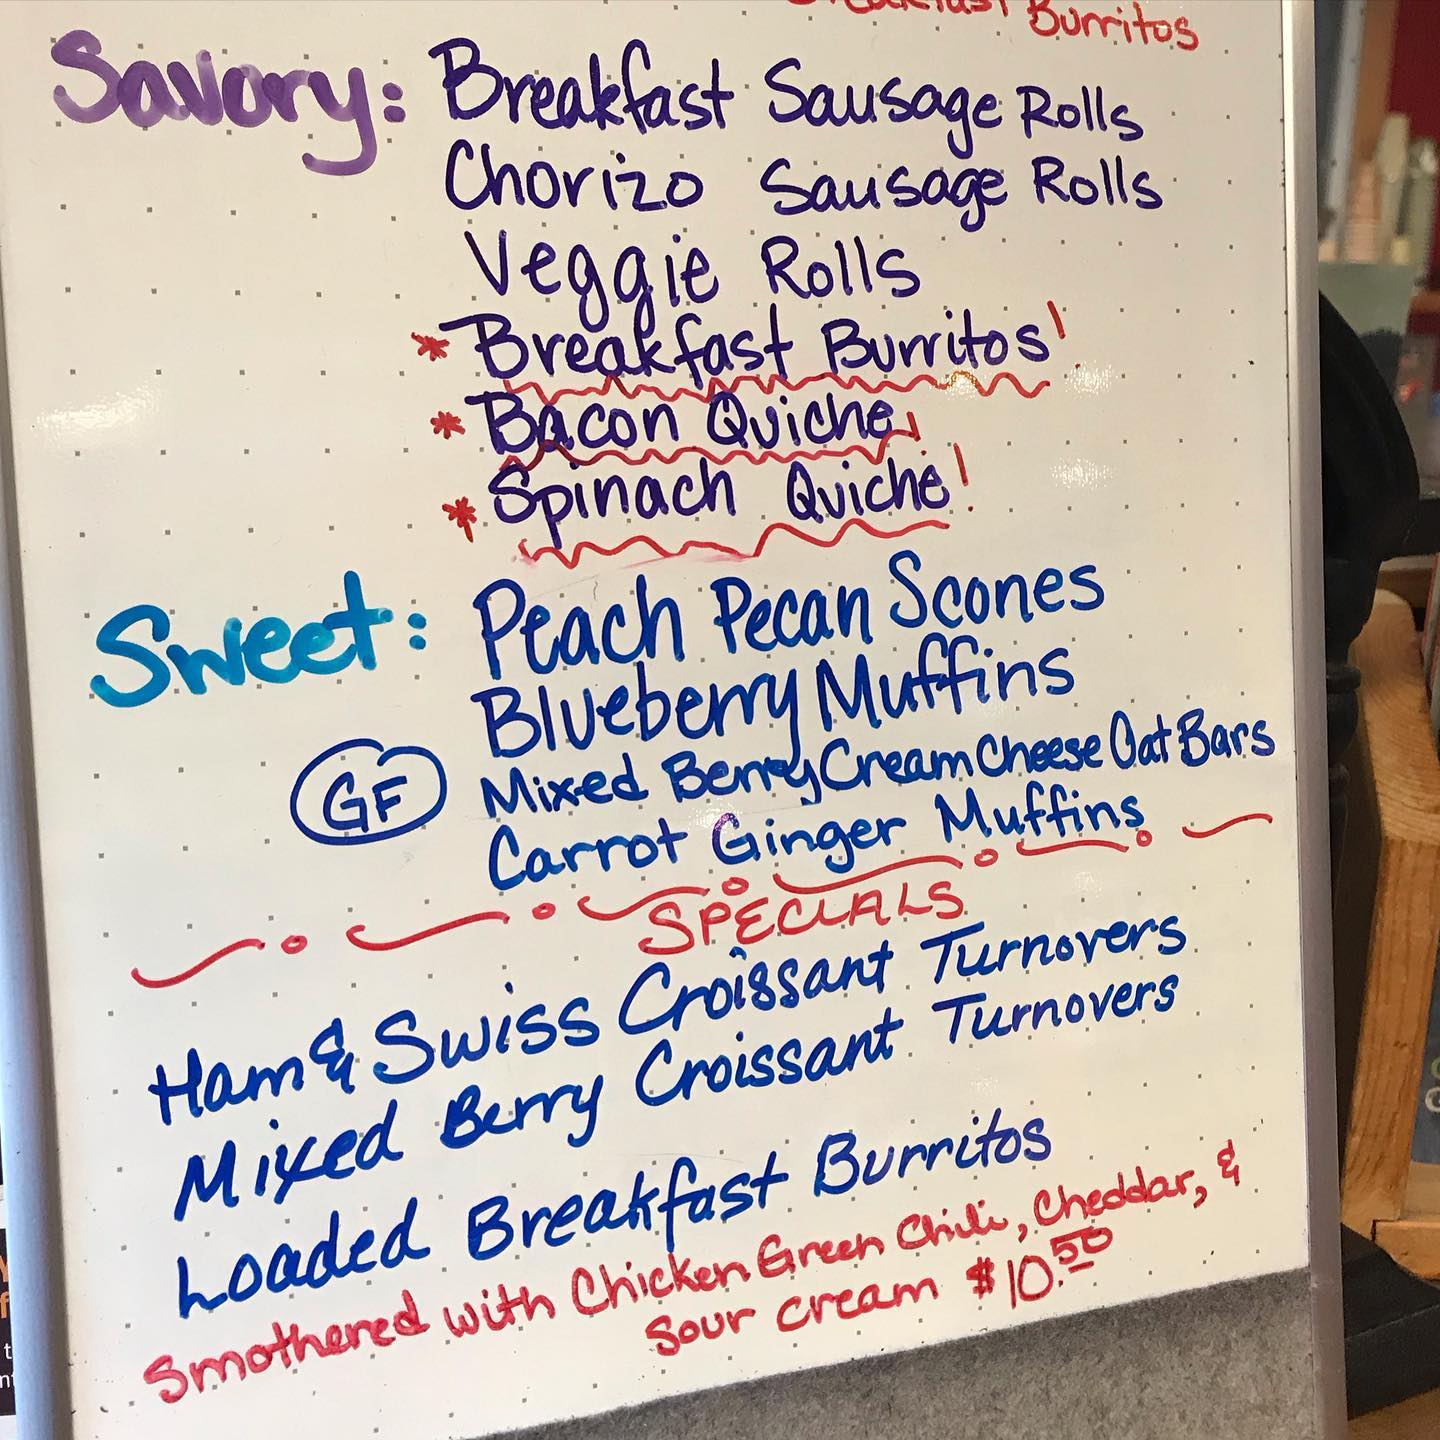 Breakfast Burritos
Savory: Breakfast Sausage Rolls
Chorizo Sausage Rolls
Veggie Rolls
* Breakfast Burritos!
* Bacon Quiche!
* Spinach Quiche!
Sweet: Peach Pecan Scones
Blueberry Muffins
GF Mixed Berry Cream Cheese Oat Bars
Carrot Ginger Muffins
SPECIALS
Ham & Swiss Croissant Turnovers
Mixed Berry Croissant Turnovers
Loaded Breakfast Burritos
Smothered with Chicken Green Chili, Cheddar, &
Sour cream $10.50